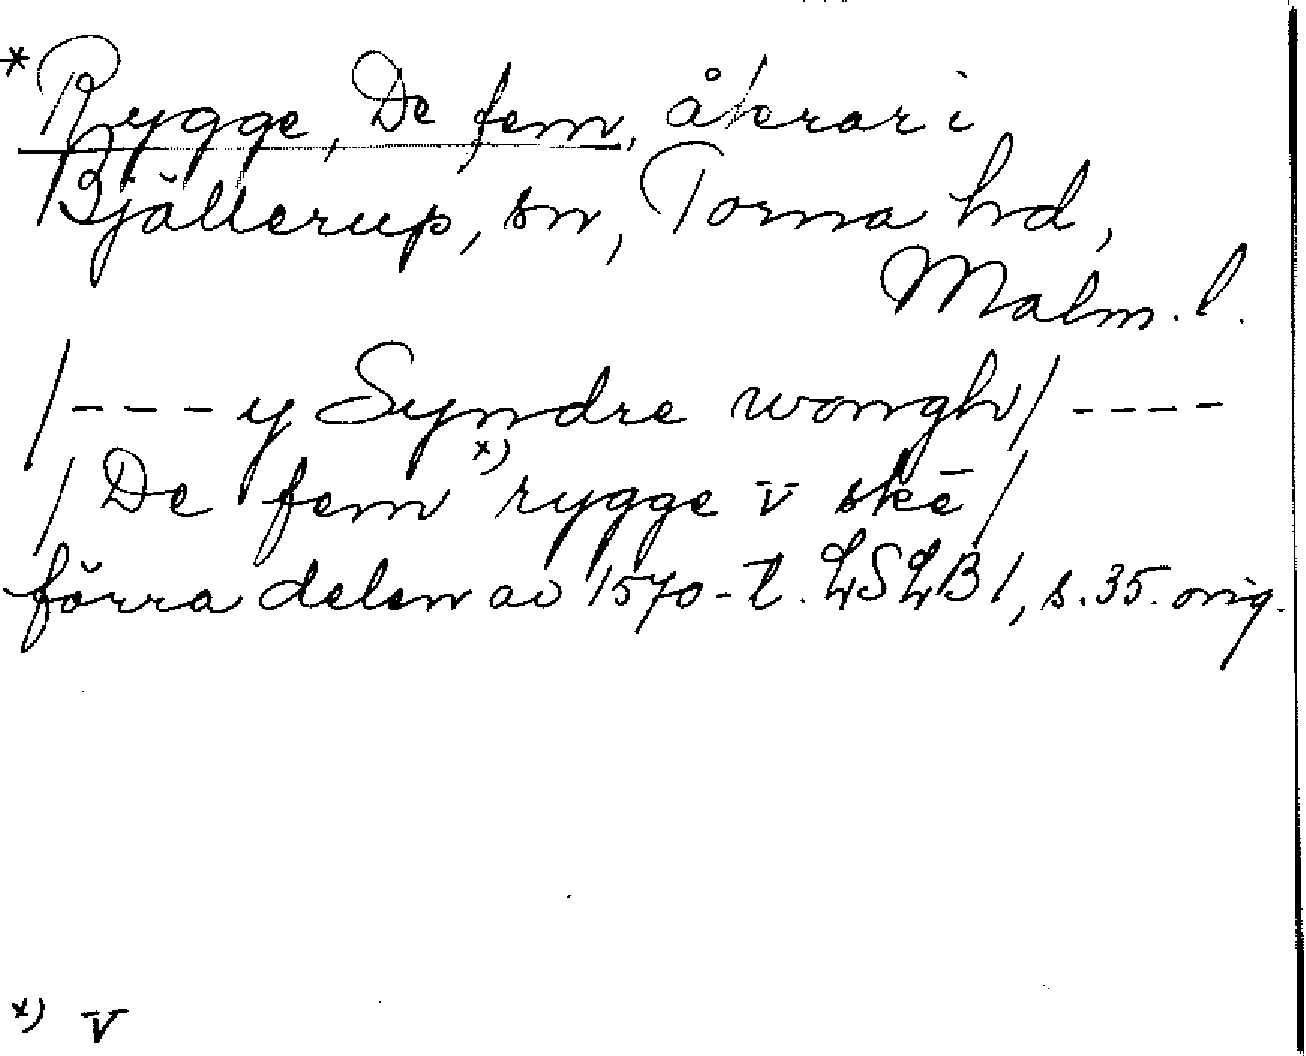 *Rygge, De fem, åkrar i
Bjällerup, sn, Torna hd,
Malm. l.
/--- y Syndre wongh/ ----
/De fem x) rygge v̄ skē/
förra delen av 1570-t. LSLB1, s. 35. orig.
x) v̄